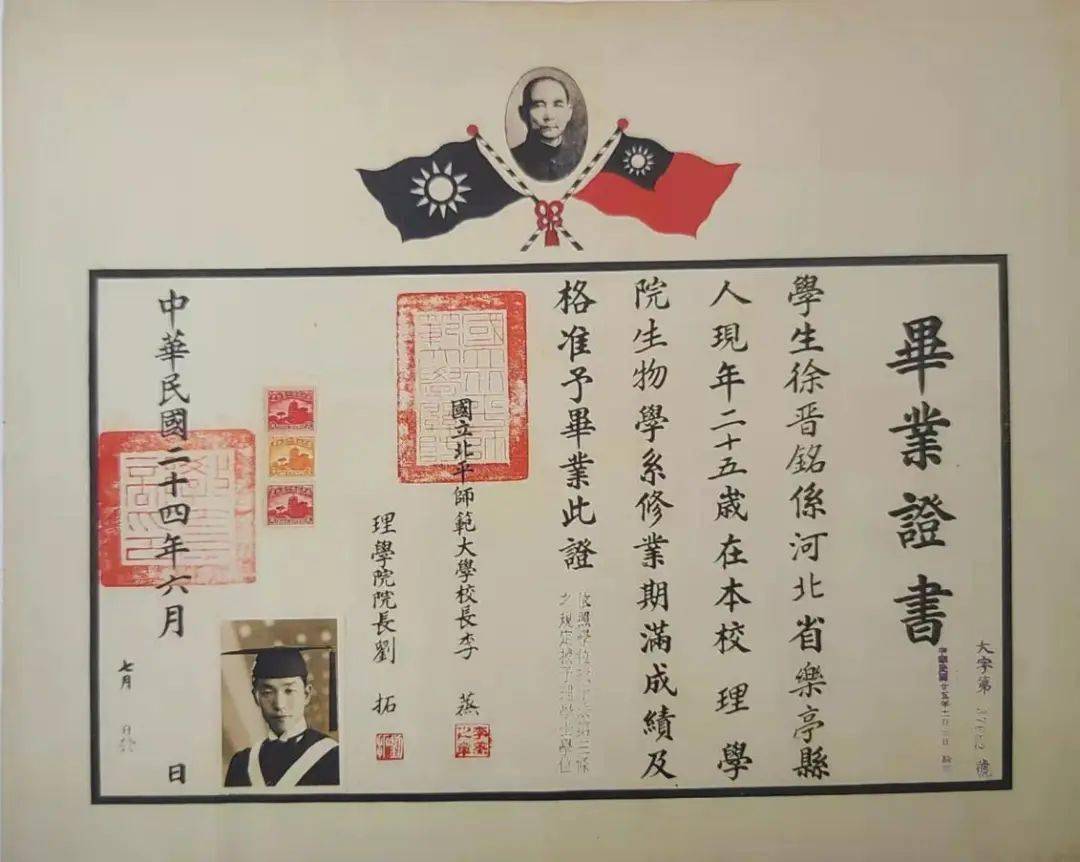 畢業證書
學生徐晋銘係河北省樂亭縣
人現年二十五歲在本校理學
院生物學系修業期滿成績及
格准予畢業此證
依照學位授予法第三條
之規定授予理學士學位
國立北平師範大學校長李蒸
李蒸之章
理學院院長劉拓
中華民國二十四年六月 日
七月
大字第 號